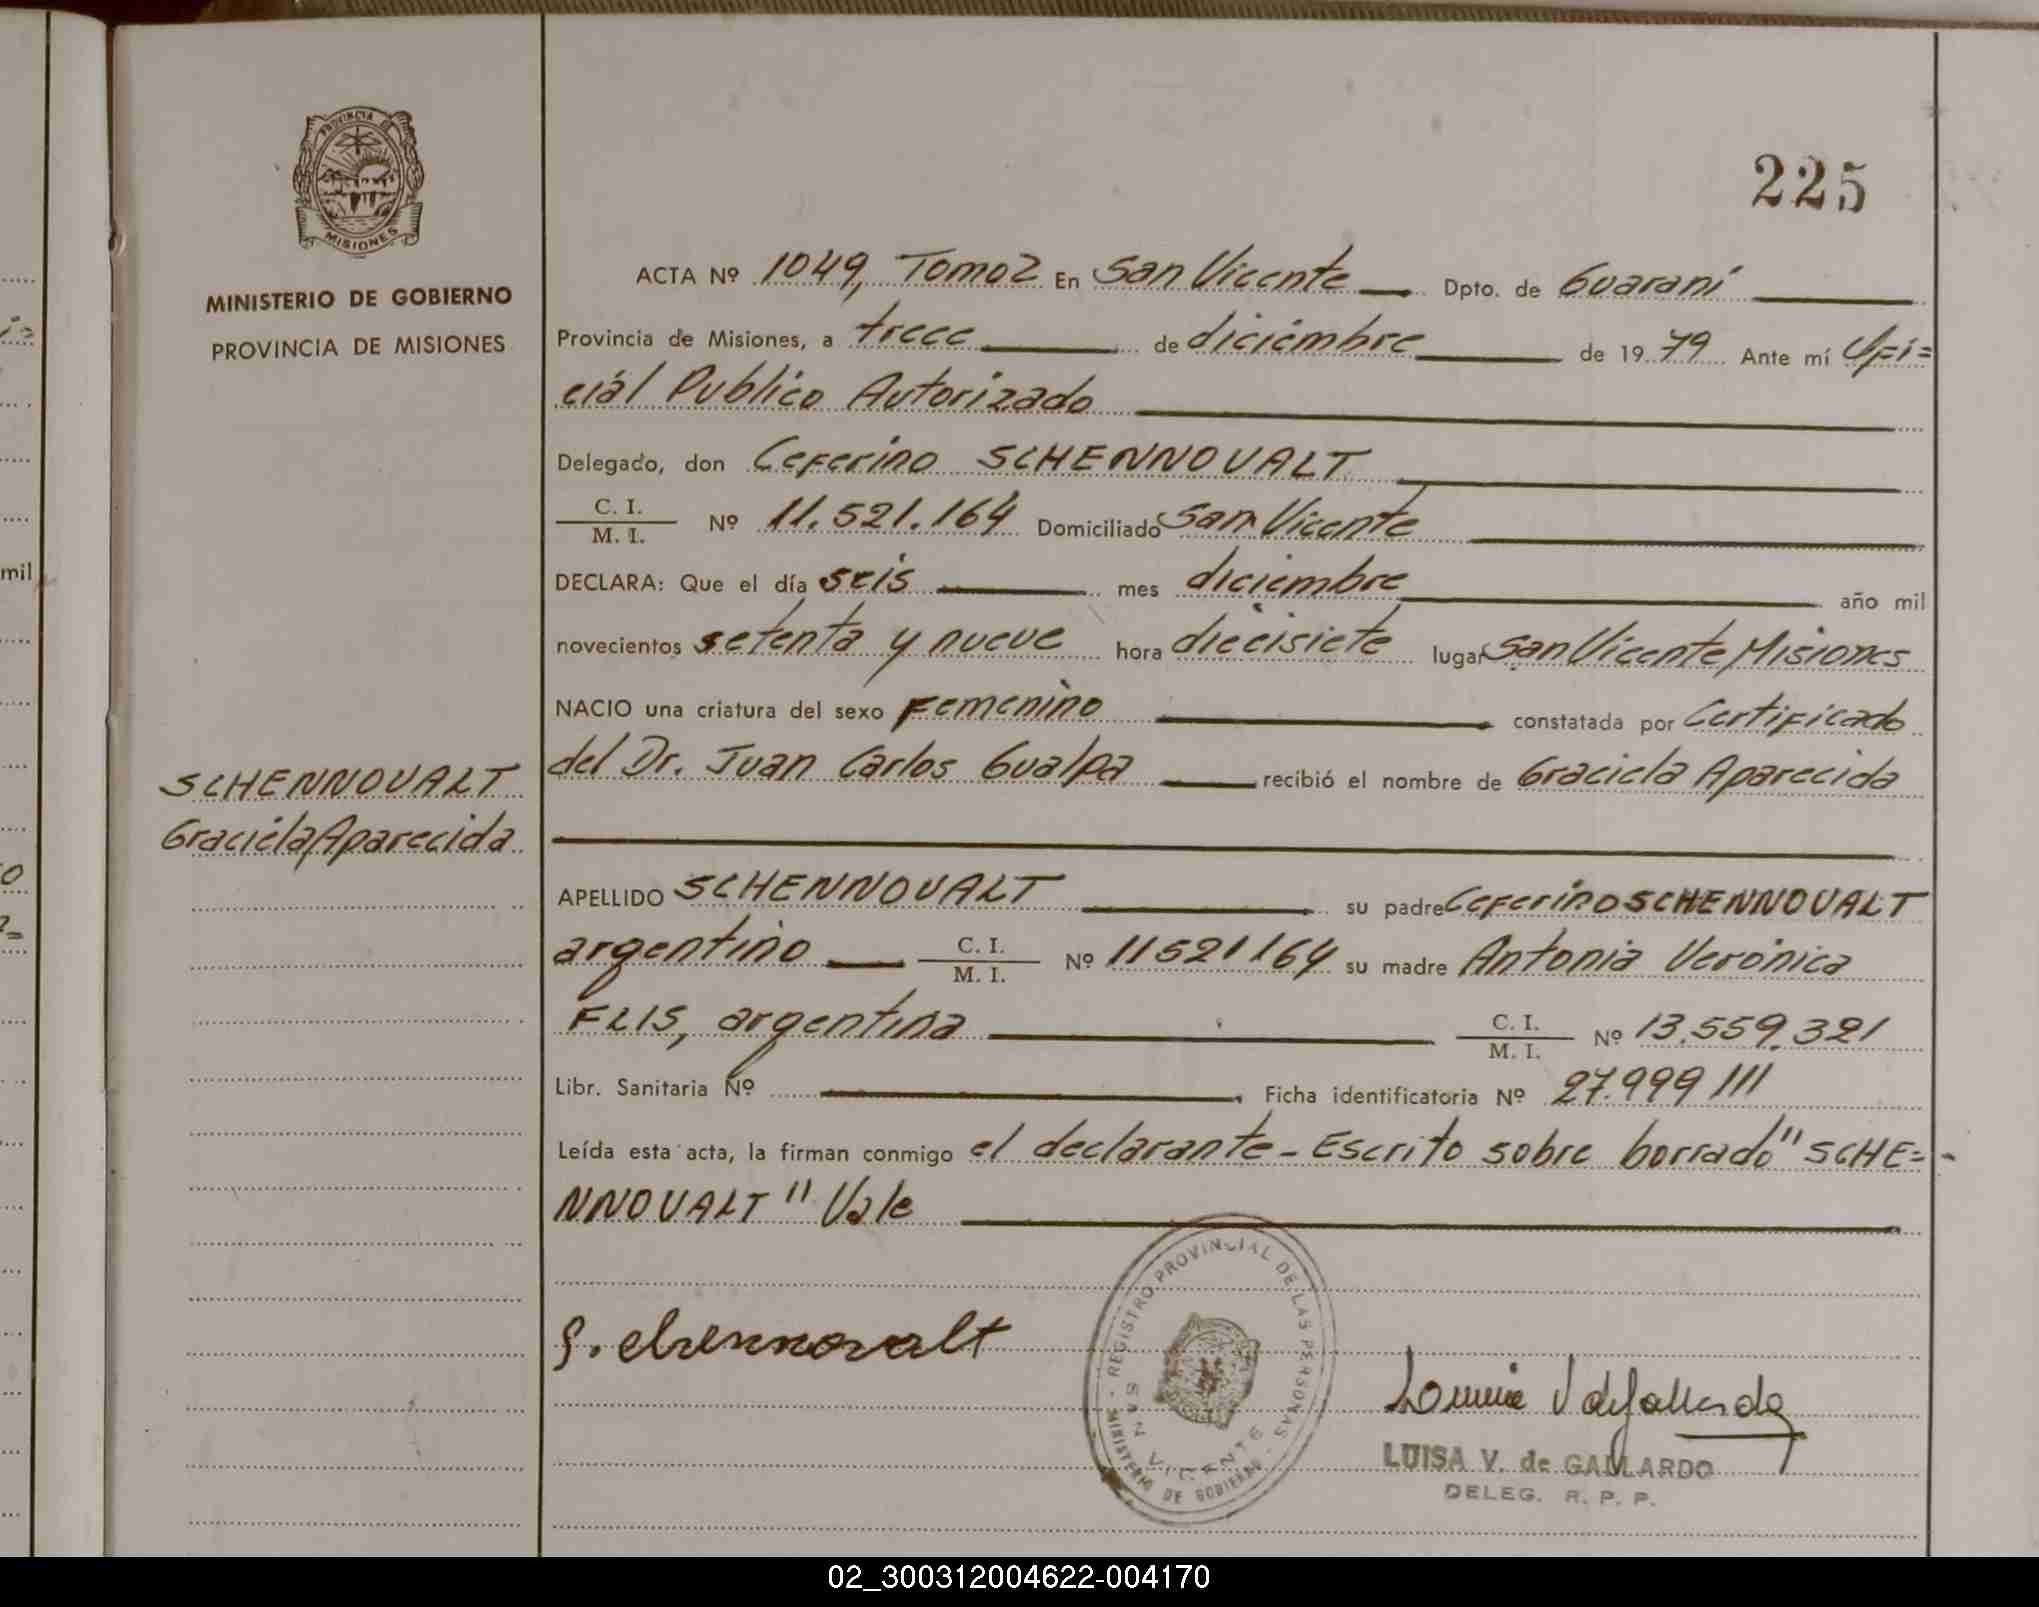 225
PROVINCIA DE
MISIONES
MINISTERIO DE GOBIERNO
PROVINCIA DE MISIONES
SCHENNOVALT
Graciela Aparecida
ACTA Nº 1049, Tomo 2 En San Vicente Dpto. de Guaraní
Provincia de Misiones, a trece de diciembre de 19 79 Ante mí Ofi=
ciál Publico Autorizado
Delegado, don Ceferino SCHENNOVALT
C. I.
M. I. Nº 11.521.164 Domiciliado San Vicente
DECLARA: Que el día seis mes diciembre año mil
novecientos setenta y nueve hora diecisiete lugar San Vicente, Misiones
NACIO una criatura del sexo Femenino constatada por Certificado
del Dr. Juan Carlos Gualpa recibió el nombre de Graciela Aparecida
APELLIDO SCHENNOVALT su padre Ceferino SCHENNOVALT
argentino C. I. M. I. Nº 11521164 su madre Antonia Verónica
FLIS, argentina C. I. M. I. Nº 13.559.321
Libr. Sanitaria Nº Ficha identificatoria Nº 27.999111
Leída esta acta, la firman conmigo el declarante - Escrito sobre borrado "SCHE=
NNOVALT" Vale
REGISTRO PROVINCIAL DE LAS PERSONAS
SAN VICENTE
MINISTERIO DE GOBIERNO
LUISA V. de GALLARDO
DELEG. R. P. P.
02_300312004622-004170